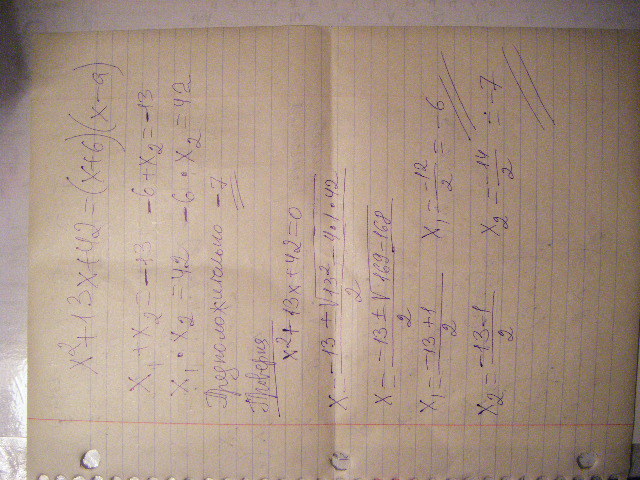 x²+13x+42=(x+6)(x-a)
x₁+x₂=-13 -6+x₂=-13
x₁·x₂=42 -6·x₂=42
Предположительно -7
Проверка
x²+13x+42=0
x=-13±√13²-4·1·42/2
x=-13±√169-168/2
x₁=-13+1/2 x₁=-12/2=-6
x₂=-13-1/2 x₂=-14/2=-7